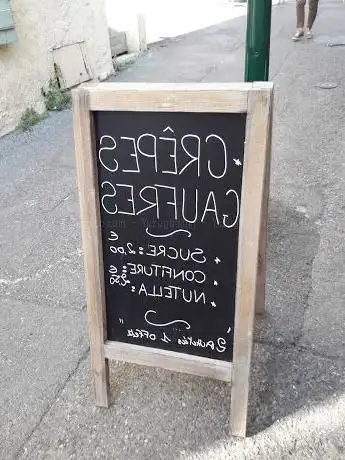 * CRÊPES
GAUFRES
+ SUCRE: 2,00 €
+ CONFITURE
+ NUTELLA:
" 2 achetés 1 offert "